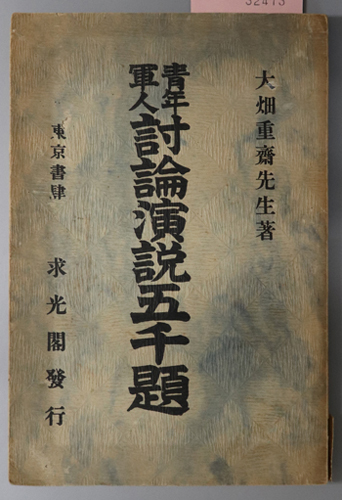 大畑重齋先生著
青年
軍人
討論演説五千題
東京書肆 求光閣發行